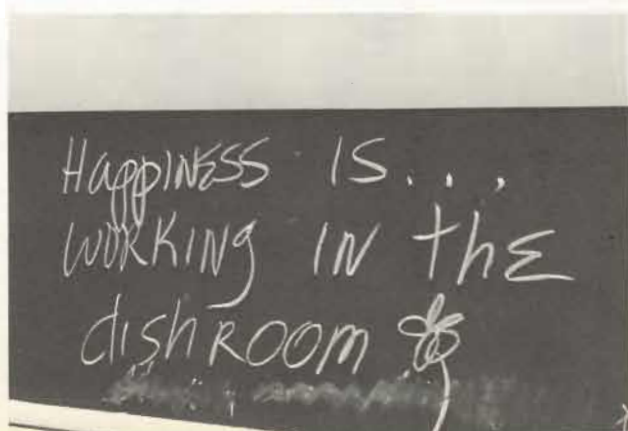 Happiness is...
working in the
dishroom